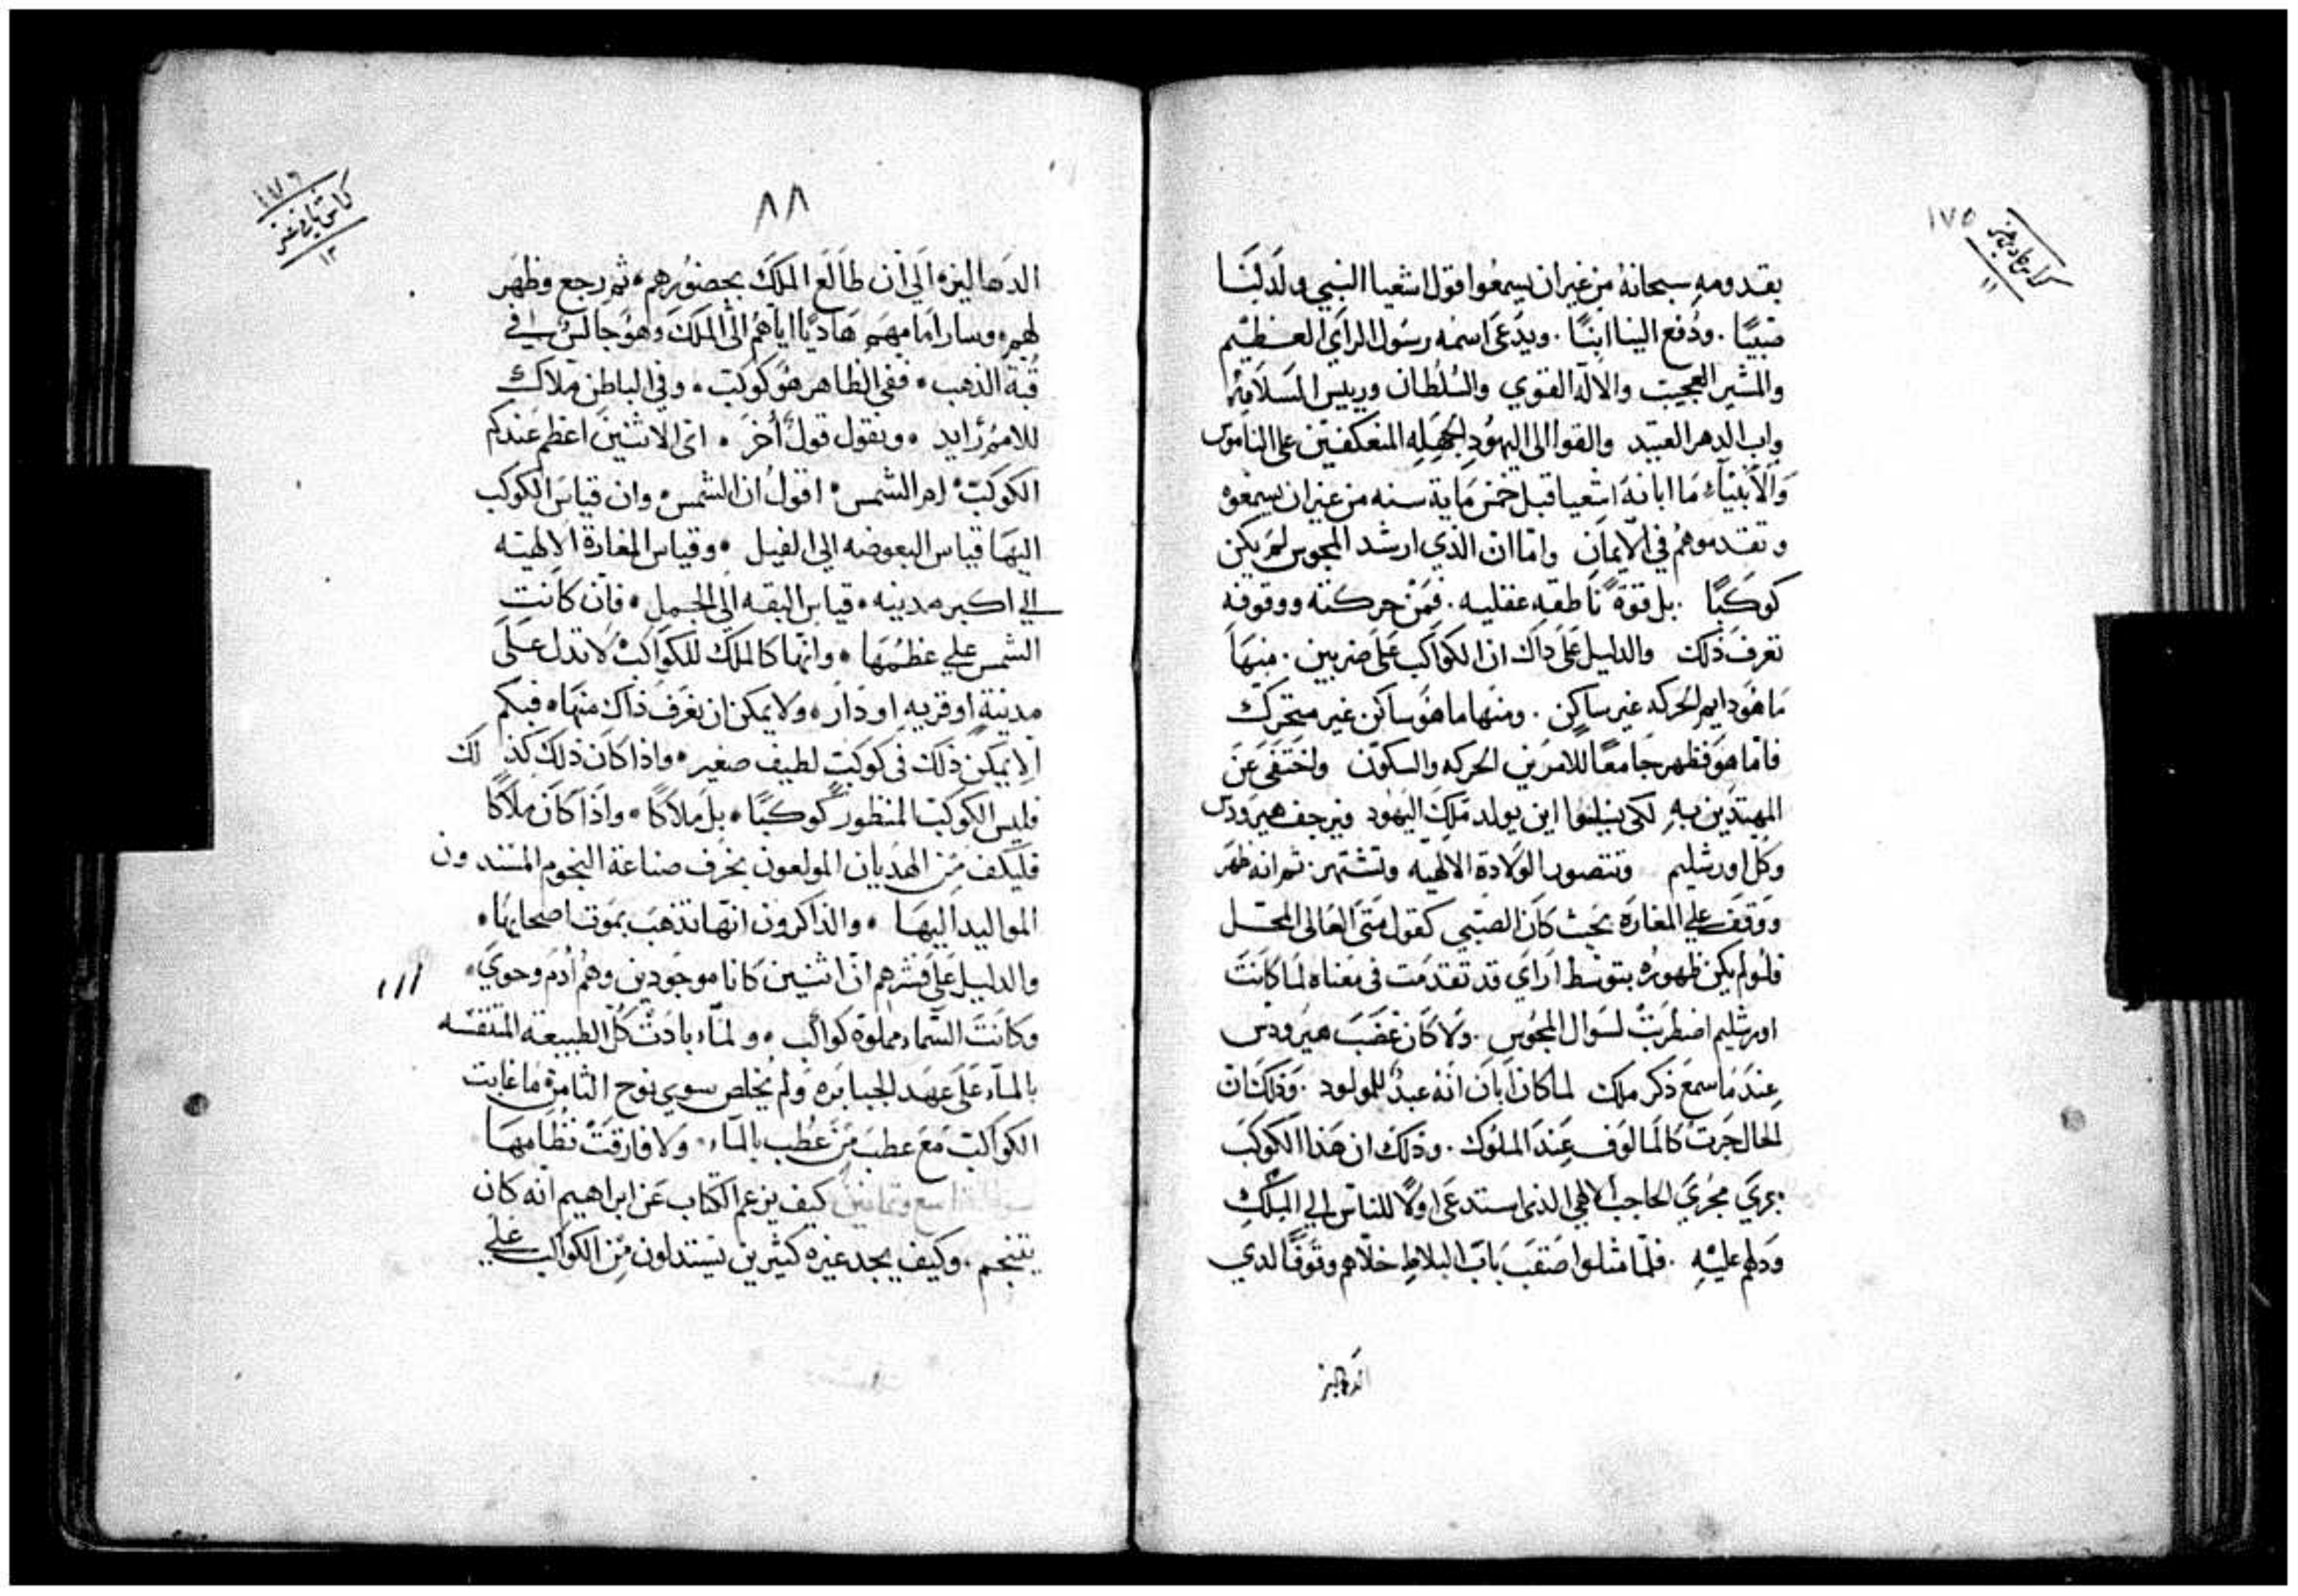 ١٧٥
بقدومه سبحانه من غير ان يسمعوا قول اشعيا النبي ولد لنا
صبيًا . ودُفع الينا ابنًا . ويدعَى اسمه رسَول الرايَ العظيم
والمشير العجيب والاله القوي والسُلطان ورييس السَلامه
واب الدهر العتيد والقوا الى اليهُود الجَهله المنعكفين على الناموس
وَالانبيَاء مَا ابانهَ اشعيا قبل خمس مَاية سنه من غير ان يسمعوه
وتقدموهُم في الايمَان وامّا ان الذي ارشد المجوس لمَ يكن
كوكَبًا . بل قوةً ناطقه عقليه . فَمَن حركته ووقوفه
تعرفَ ذَلك والدليل عَلى ذاك ان الكَواكب عَلى ضربين . منهَا
مَا هوَ دايم الحَركه غير ساكن . ومنهَا ما هوَ ساكن غير متحرك
فامّا هوَ فظهر جَامعًا للامرَين الحركه والسكون واختفَى عَن
المهتدين بهِ لكى يسلوا اين يولد مَلك اليهَود فيرجف هيرودس
وكل اورشليم وتتصور الولادة الالهيه وتشتهر ثم انه ظهَر
ووَقفَ على المغارَه بحَيث كانَ الصَبي كقول متَى العَالى المحَل
فلَولم يكن ظهورُه بتوسَط ارَاي قد تقدمَت فى مَعناه لمَا كانَت
اورشليم اضطربَتْ لسَوال المجُوس . وَلا كان غضَبَ هيرَودس
عِندَ مَا سمعَ ذكر ملك لما كان ابَان انَه عبدٌ للمولود . وَذلك ان
الحال جَرت كالمَالوَف عِندَ الملوك . وَذلك ان هَذا الكَوكبَ
جرَي مجُريَ الحاجب الالهي الذى استدعَى اولًا للناسَ الى الملكِ
وَدلهم عليْهِ . فلمّا مثلوا صَقبَ بَاب البلاط خلّاهم وقوفًا لدي
الدهاليز
٨٨
الدهاليزه الَي ان طالَع الملَكَ بحضوُرهم ، ثم رجع وظهَر
لهم ، وسار امَامهَم هَاديًا اياهُم الى المَلكَ وَهو جَالسُ في
قُبة الذهب ، ففى الظاهر هوَ كوكبَ ، وفي الباطن ملاك
للامرُ زايد ، ونقول قولٌ أخرَ ، اى الاثنين اعظم عَندكم
الكوكبَ ، ام الشمس ، اقول ان الشمس ، وان قياسَ الكوكب
اليهَا قياس البعوضه الى الفيل ، وقياس المغارة الالهيَه
الى اكبر مدينه ، قياس البقه الَى الجمل ، فان كانت
الشمس علي عظمُهَا ، وانها كالملك للكواكب لاتدل عَلى
مدينةٍ او قريه او دَار ، ولا يمكن ان يعَرف ذاك منهَا ، فبكم
الا يمَكن ذَلك فى كوكبَ لطيف صغير ، واذا كانَ ذلكَ كَذلَك
فليس الكَوكبَ المنظور كوكبًا ، بل مَلاكًا ، واذَا كانَ مَلاكًا
فليَكف مِن الهَديان المولعون بخرف صناعة النجوم المسندون
المواليد اليهَا ، والذاكرون انهَا تذهبَ بموَت اصحابهَا ،
والدليل عَلى فشرهم انّ اثنين كانا موجَودين وهُم أدمَ وحويَ ،
وكانتَ السّماء مملوة كواكب ، ولمّا بادتْ كُل الطبيعة المتنفسه
بالمَاء عَلى عهَد الجبابره وَلم يُخلص سوي نوح الثامن مَا غابت
الكَواكبَ مَعَ عطبَ مَن عُطب بالمَاء ، وَلا فارقتْ نظامهَا
كيف يزعم الكتاب عَن ابراهيم انّه كانَ
يتنجم . وكيف يجد غيره كثيرين يَستدلون مِن الكواكب علي